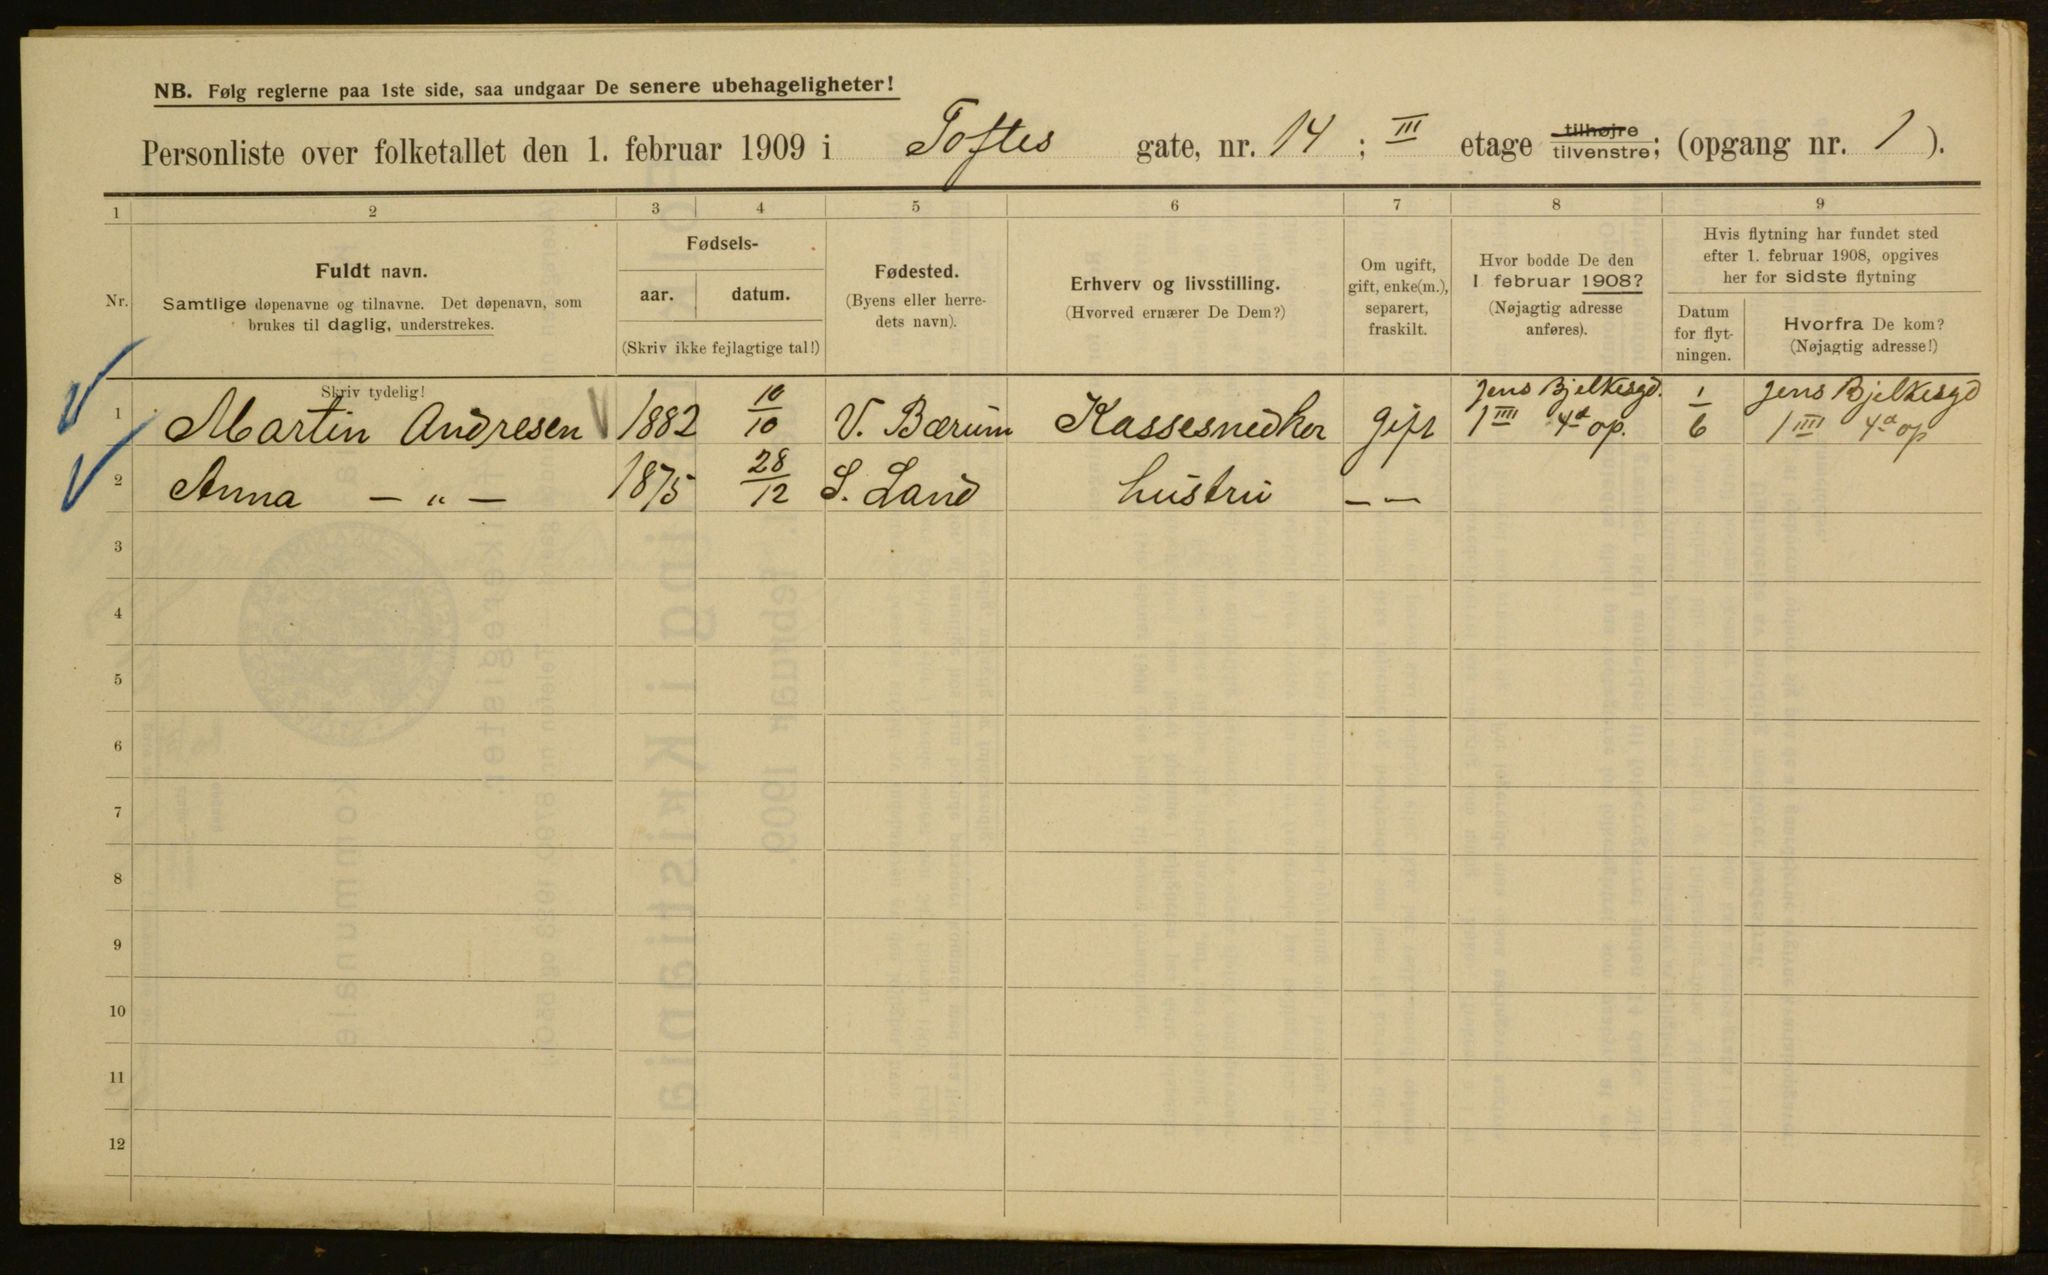 NB. Følg reglerne paa 1ste side, saa undgaar De senere ubehageligheter!
Personliste over folketallet den 1. februar 1909 i Toftes gate, nr. 14 ; III etage tilhøjre tilvenstre; (opgang nr. 1 ).
1 2 3 4 5 6 7 8 9
Nr.
Fuldt navn.
Samtlige døpenavne og tilnavne. Det døpenavn, som
brukes til daglig, understrekes.
Skriv tydelig!
Fødsels-
aar. datum.
(Skriv ikke fejlagtige tal!)
Fødested.
(Byens eller herre-
dets navn).
Erhverv og livsstilling.
(Hvorved ernærer De Dem?)
Om ugift,
gift, enke(m.),
separert,
fraskilt.
Hvor bodde De den
1 februar 1908?
(Nøjagtig adresse
anføres).
Hvis flytning har fundet sted
efter 1. februar 1908, opgives
her for sidste flytning
Datum
for flyt-
ningen.
Hvorfra De kom?
(Nøjagtig adresse!)
1 Martin Andresen 1882 10/10 V. Bærum Kassesnedker gift Jens Bjelkesgd. 1 IIII 4d op. 1/6 Jens Bjelkesgd 1 IIII 4d op
2 Anna — „ — 1875 28/12 S. Land hustru — —
3
4
5
6
7
8
9
10
11
12